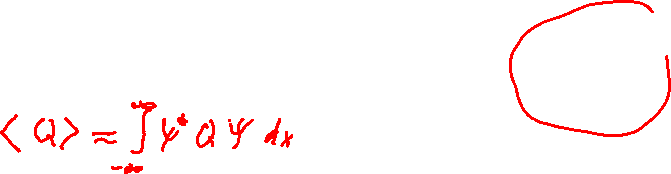 ⟨Q⟩ ≈ ∫_{-∞}^{+∞} ψ* Q ψ dx